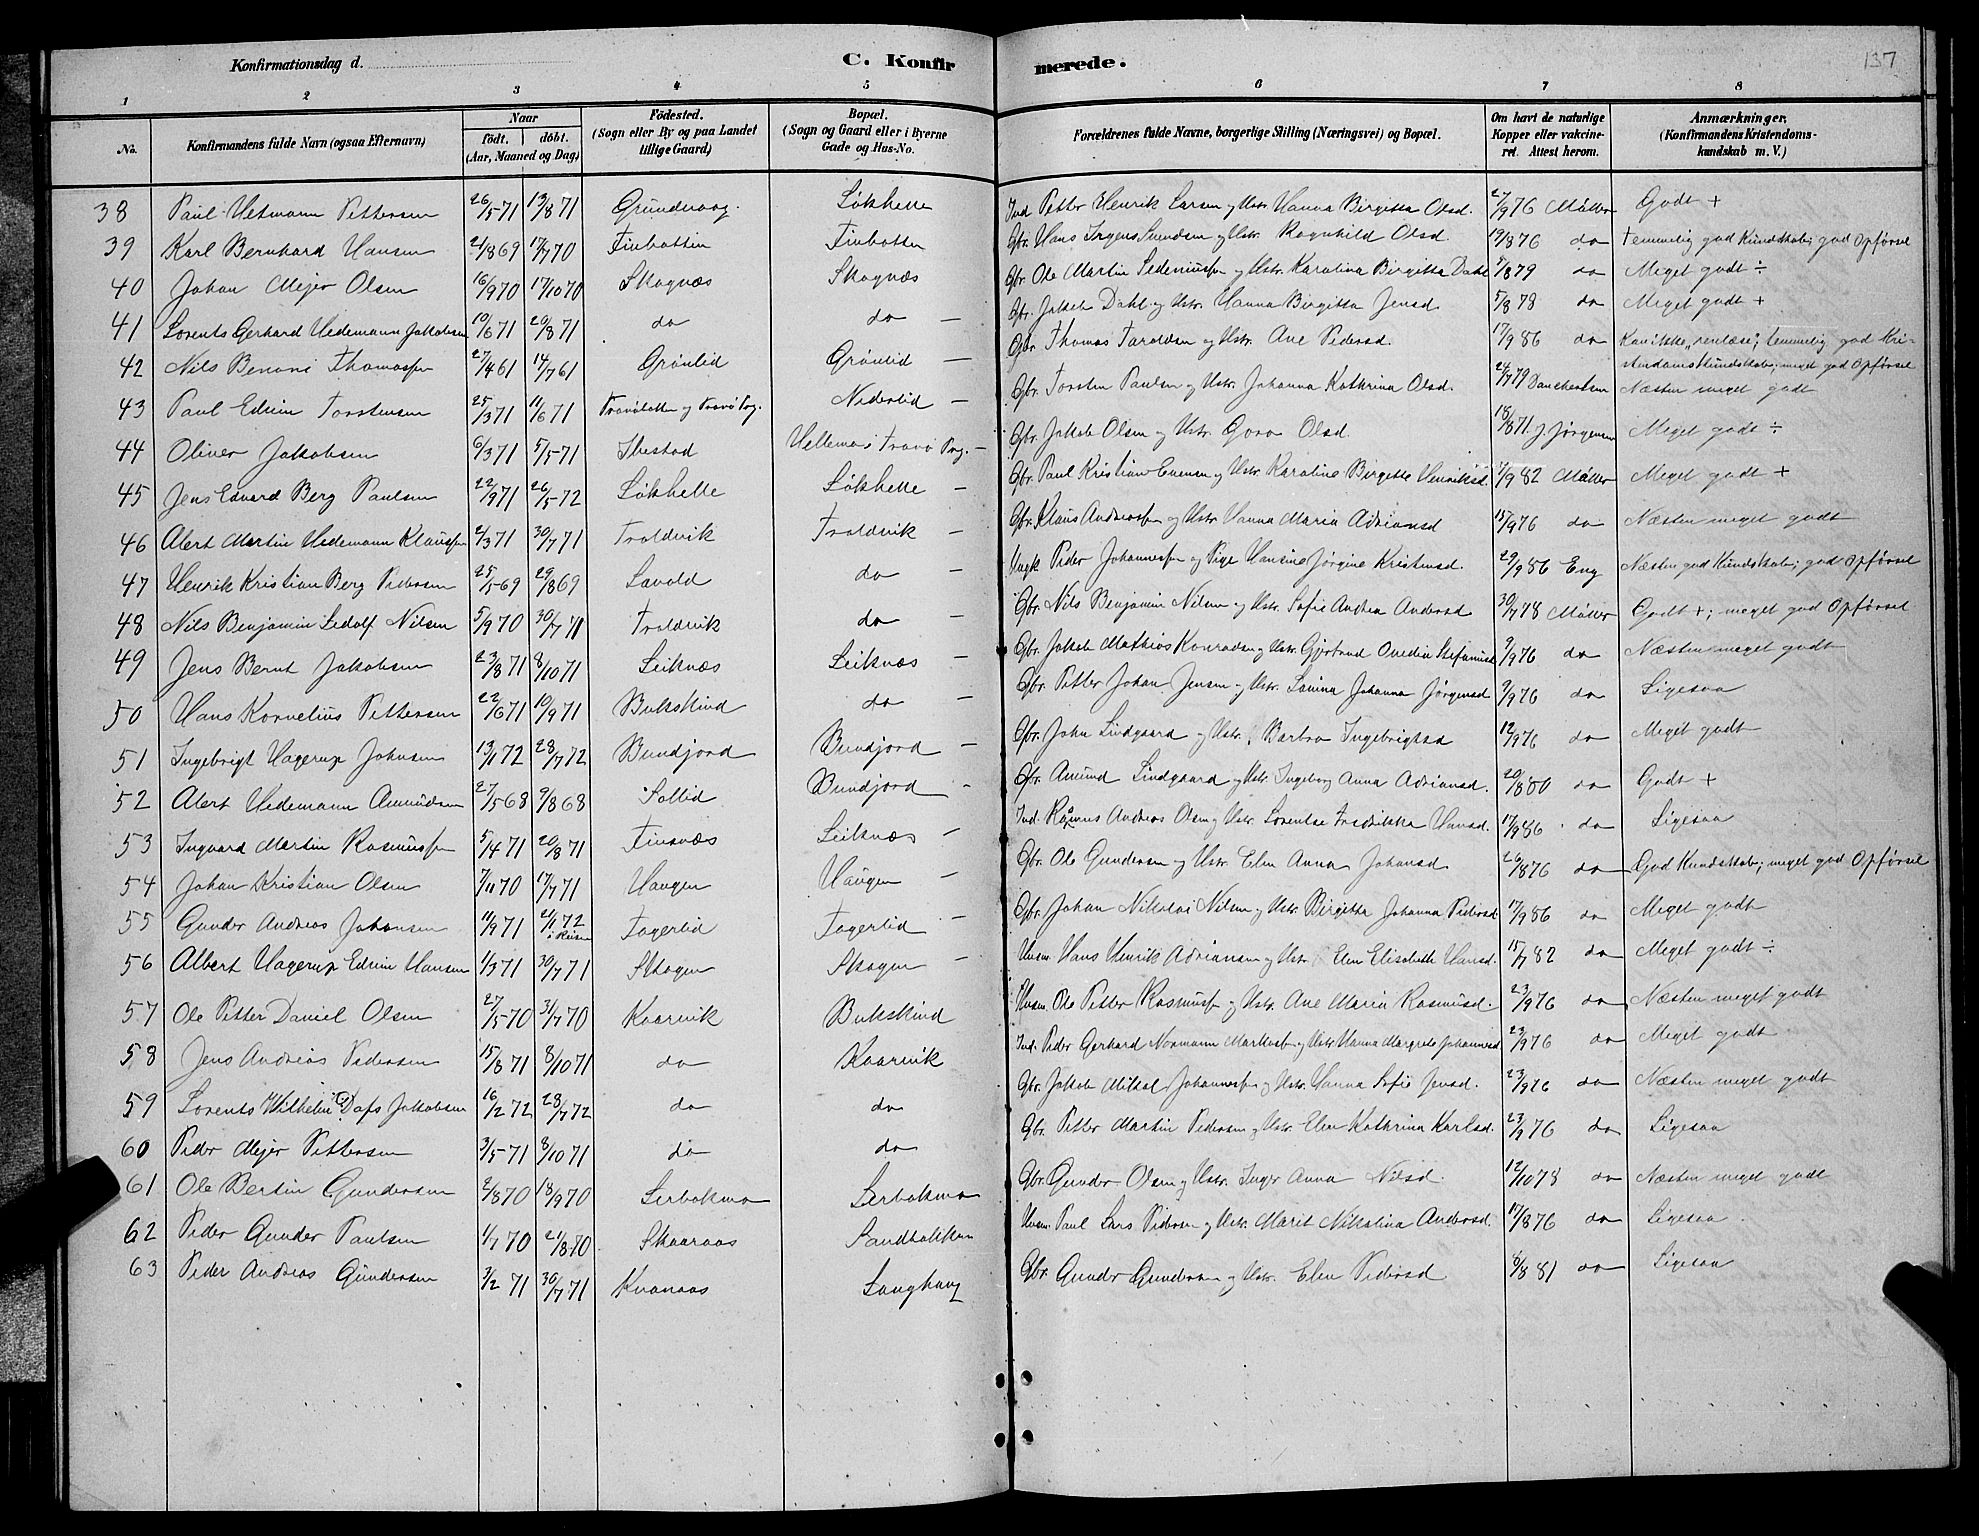 Konfirmationsdag d.
C. Konfirmerede.
137
1 2 3 4 5 6 7 8
No. | Konfirmandens fulde Navn (ogsaa Efternavn) | Naar født. døbt. (Aar, Maaned og Dag) | Fødested. (Sogn eller By og paa Landet tillige Gaard) | Bopæl. (Sogn og Gaard eller i Byerne Gade og Hus-No. | Forældrenes fulde Navne, borgerlige Stilling (Næringsvei) og Bopæl. | Om havt de naturlige Kopper eller vakcineret. Attest herom. | Anmærkninger. (Konfirmandens Kristendomskundskab m. V.)
38 Paul Hetmann Pettersen 26/5 71 13/8 71 Grundvaag Løkhelle Ind. Petter Henrik Larsen og Hstr. Hanna Birgitta Olsd. 27/9 76 Møller Godt +
39 Karl Bernhard Hansen 2/8 69 17/7 70 Finbotten Finbotten Gbr. Hans Svendsen og Hstr. Ragnhild Olsd. 19/8 76 do temmelig god Kundskab; god Opførsel
40 Johan Mejer Olsen 16/9 70 17/10 70 Skognæs Skognæs Gbr. Ole Martin Sedeniussen og Hstr. Karolina Birgitta Dahl 5/8 79 do Meget godt ÷
41 Lorents Gerhard Hedemann Jakobsen 10/6 71 20/8 71 do do — Gbr. Jakob Dahl og Hstr. Hanna Birgitta Jensd. 5/8 78 do Meget godt +
42 Nils Benoni Thomassen 27/4 61 14/7 61 Grønlid Grønlid — Gbr. Thomas Taraldsen og Hstr. Ane Pedersd. 17/9 86 do Kan ikke „renlæse; temmelig god Kristendomskundskab; meget god Opførsel
43 Paul Edvin Torstensen 25/3 71 11/6 71 Tranøbotten og Tranø Prg. Nederlid — Gbr. Torsten Paulsen og Hstr. Johanna Kathrina Olsd. 24/7 79 Danchertsen Næsten meget godt
44 Oliver Jakobsen 6/3 71 5/5 71 Ibestad Hellemo i Tranø Prg. — Gbr. Jakob Olsen og Hstr. Gora Olsd. 18/8 71 J. Jørgensen Meget godt ÷
45 Jens Edvard Berg Paulsen 22/9 71 26/5 72 Løkhelle Løkhelle — Gbr. Paul Kristian Evensen og Hstr. Karoline Birgitte Henriksd. 1/9 82 Møller Meget godt +
46 Alert Martin Hedemann Klaussen 2/3 71 30/7 71 Troldvik Troldvik — Gbr. Klaus Andreassen og Hstr. Hanna Maria Adriansd 15/9 76 do Næsten meget godt
47 Henrik Kristian Berg Pedersen 25/5 69 29/8 69 Lavold do — Ungk Peder Johannessen og Pige Hansine Jørgine Kristensd. 29/9 86 Eng Næsten god Kundskab; god Opførsel
48 Nils Benjamin Sedolf Nilsen 5/9 70 30/7 71 Troldvik do — Gbr. Nils Benjamin Nilsen og Hstr. Sofie Andrea Andersd 30/7 78 Møller Godt +; meget god Opførsel
49 Jens Bernt Jakobsen 23/8 71 8/10 71 Leiknæs Leiknæs — Gbr. Jakob Mathias Konradsen og Hstr. Gjertrud Ovedia Stefanusd 9/9 76 do Næsten meget godt
50 Hans Kornelius Pettersen 22/6 71 10/9 71 Bukskind do — Gbr. Petter Johan Jensen og Hstr. Lovina Johanna Jørgensd 9/9 76 do Ligesaa
51 Ingebrigt Hagerup Johnsen 13/1 72 28/7 72 Bundjord Bundjord — Gbr. John Lindgaard og Hstr. Barbro Ingebrigtsd 12/9 76 do Meget godt
52 Alert Hedemann Amundsen 27/5 68 9/8 68 Sollid Bundjord — Gbr. Amund Lindgaard og Hstr. Ingeborg Anna Adriansd. 20/8 80 do Godt +
53 Ingvard Martin Rasmussen 5/4 71 20/8 71 Finsnæs Leiknæs — Ind. Rasmus Andreas Olsen og Hstr. Lorentse Fredrikka Hansd. 17/9 86 do Ligesaa
54 Johan Kristian Olsen 7/11 70 17/7 71 Haugen Haugen — Gbr. Ole Gundersen og Hstr. Elen Anna Johansd 26/8 76 do God Kundskab; meget god Opførsel
55 Gunder Andreas Johansen 11/9 71 2/1 72 i Reisen Fagerlid Fagerlid — Gbr. Johan Nikolai Nilsen og Hstr. Birgitta Johanna Pedersd 17/9 86 do Meget godt
56 Albert Hagerup Edvin Hansen 1/3 71 30/7 71 Skogen Skogen — Husm. Hans Henrik Adriansen og Hstr. Elen Elisabeth Hansd. 15/7 82 do Meget godt ÷
57 Ole Petter Daniel Olsen 27/5 70 31/7 70 Kaarvik Bukskind Husm. Ole Petter Rasmussen og Hstr. Ane Maria Rasmusd. 23/9 76 do Næsten meget godt
58 Jens Andreas Pedersen 15/8 71 8/10 71 do Kaarvik Ind. Peder Gerhard Normann Markussen og Hstr. Hanna Margrete Johannesd 23/9 76 do Meget godt
59 Lorents Wilhelm Dass Jakobsen 16/2 72 28/7 72 do do Gbr. Jakob Mikal Johannessen og Hstr. Hanna Sofie Jensd. 23/9 76 do Næsten meget godt
60 Peder Mejer Pettersen 3/5 71 8/10 71 do do Gbr. Petter Martin Pedersen og Hstr. Elen Kathrina Karlsd. 23/9 76 do Ligesaa
61 Ole Bertin Gundersen 2/8 70 18/9 70 Lerbakmo Lerbakmo Gbr. Gunder Olsen og Hstr. Inger Anna Nilsd. 12/10 78 do Næsten meget godt
62 Peder Gunder Paulsen 1/7 70 21/8 70 Skaaraas Sandbakken Husm. Paul Lars Pedersen og Hstr. Marit Nikolina Andersd. 17/8 76 do Ligesaa
63 Peder Andreas Gundersen 3/2 71 30/7 71 Kvanaas Langhaug Gbr. Gunder Gundersen og Hstr. Elen Pedersd 6/8 81 do Ligesaa